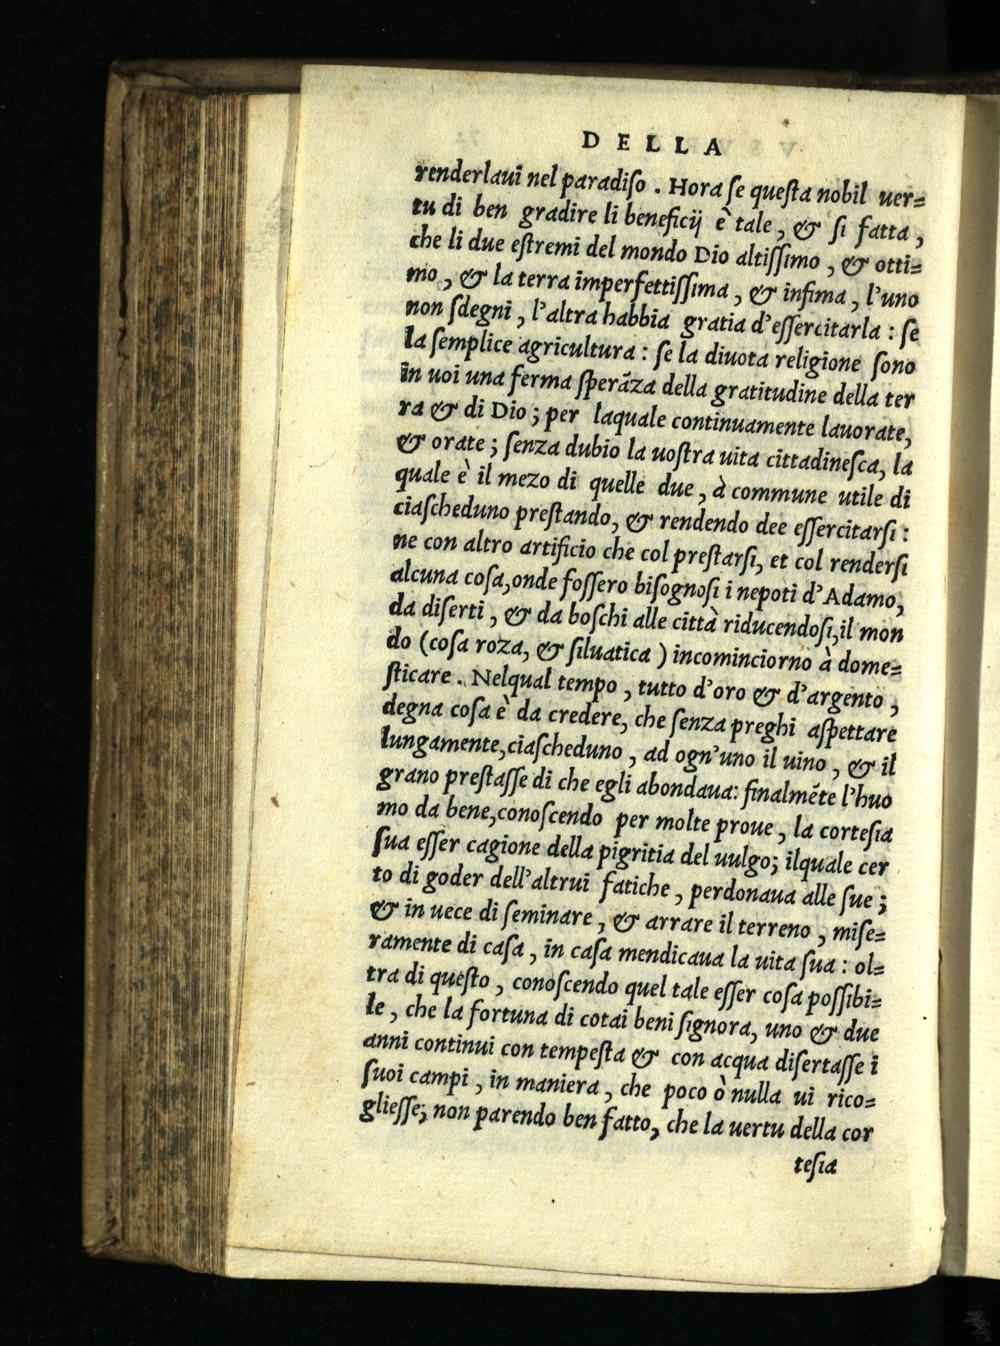 DELLA
renderlaui nel paradiſo . Hora ſe queſta nobil uer=
tu di ben gradire li beneficij è tale, & ſi fatta,
che li due eſtremi del mondo Dio altiſſimo, & otti=
mo, & la terra imperfettiſſima, & infima, l'uno
non ſdegni, l'altra habbia gratia d'eſſercitarla : ſe
la ſemplice agricultura : ſe la diuota religione ſono
in uoi una ferma ſperãza della gratitudine della ter
ra & di Dio ; per laquale continuamente lauorate,
& orate ; ſenza dubio la uoſtra uita cittadineſca, la
quale è il mezo di quelle due, à commune utile di
ciaſcheduno preſtando, & rendendo dee eſſercitarſi :
ne con altro artificio che col preſtarſi, et col renderſi
alcuna coſa,onde foſſero biſognoſi i nepoti d'Adamo,
da diſerti, & da boſchi alle città riducendoſi,il mon
do (coſa roza, & ſiluatica ) incominciorno à dome=
ſticare . Nelqual tempo, tutto d'oro & d'argento,
degna coſa è da credere, che ſenza preghi aſpettare
lungamente,ciaſcheduno, ad ogn'uno il uino, & il
grano preſtaſſe di che egli abondaua: finalmẽte l'huo
mo da bene,conoſcendo per molte proue, la corteſia
ſua eſſer cagione della pigritia del uulgo; ilquale cer
to di goder dell'altrui fatiche, perdonaua alle ſue ;
& in uece di ſeminare, & arrare il terreno, miſe=
ramente di caſa, in caſa mendicaua la uita ſua : ol=
tra di queſto, conoſcendo quel tale eſſer coſa poſſibi=
le, che la fortuna di cotai beni ſignora, uno & due
anni continui con tempeſta & con acqua diſertaſſe i
ſuoi campi, in maniera, che poco ò nulla ui rico=
glieſſe; non parendo ben fatto, che la uertu della cor
teſia